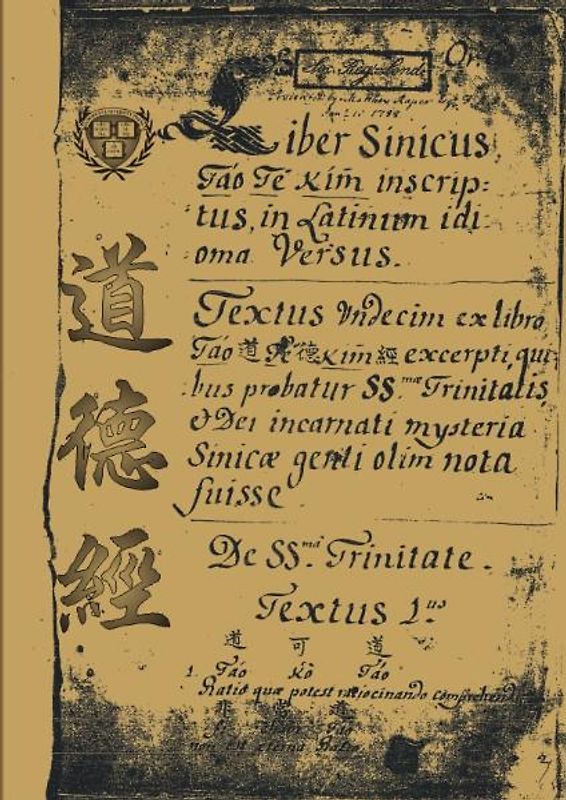 道
德
經
Jan. 10 1788
Liber Sinicus,
Táo Té Kim̄ inscrip:
tus, in Latinum idi-
oma Versus.
Textus Undecim ex libro
Táo 道 Té 德 Kim̄ 經 excerpti, qui
bus probatur SS.mæ Trinitatis,
& Dei incarnati mysteria
Sinicæ genti olim nota
fuisse
De SS.mâ Trinitate.
Textus 1.us
道 可 道
1. Táo Kò Táo
Ratio quæ potest ratiocinando comprehendi
非 常 道
fi cham Táo
non est æterna Ratio
2